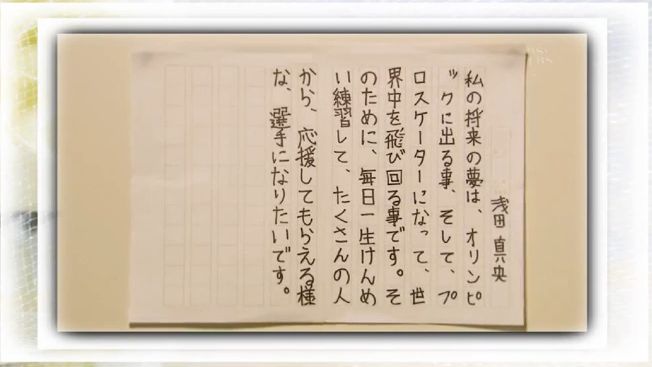 浅田真央
私の将来の夢は、オリンピ
ックに出る事、そして、プ
ロスケーターになって、世
界中を飛び回る事です。そ
のために、毎日一生けんめ
い練習して、たくさんの人
から、応援してもらえる様
な、選手になりたいです。